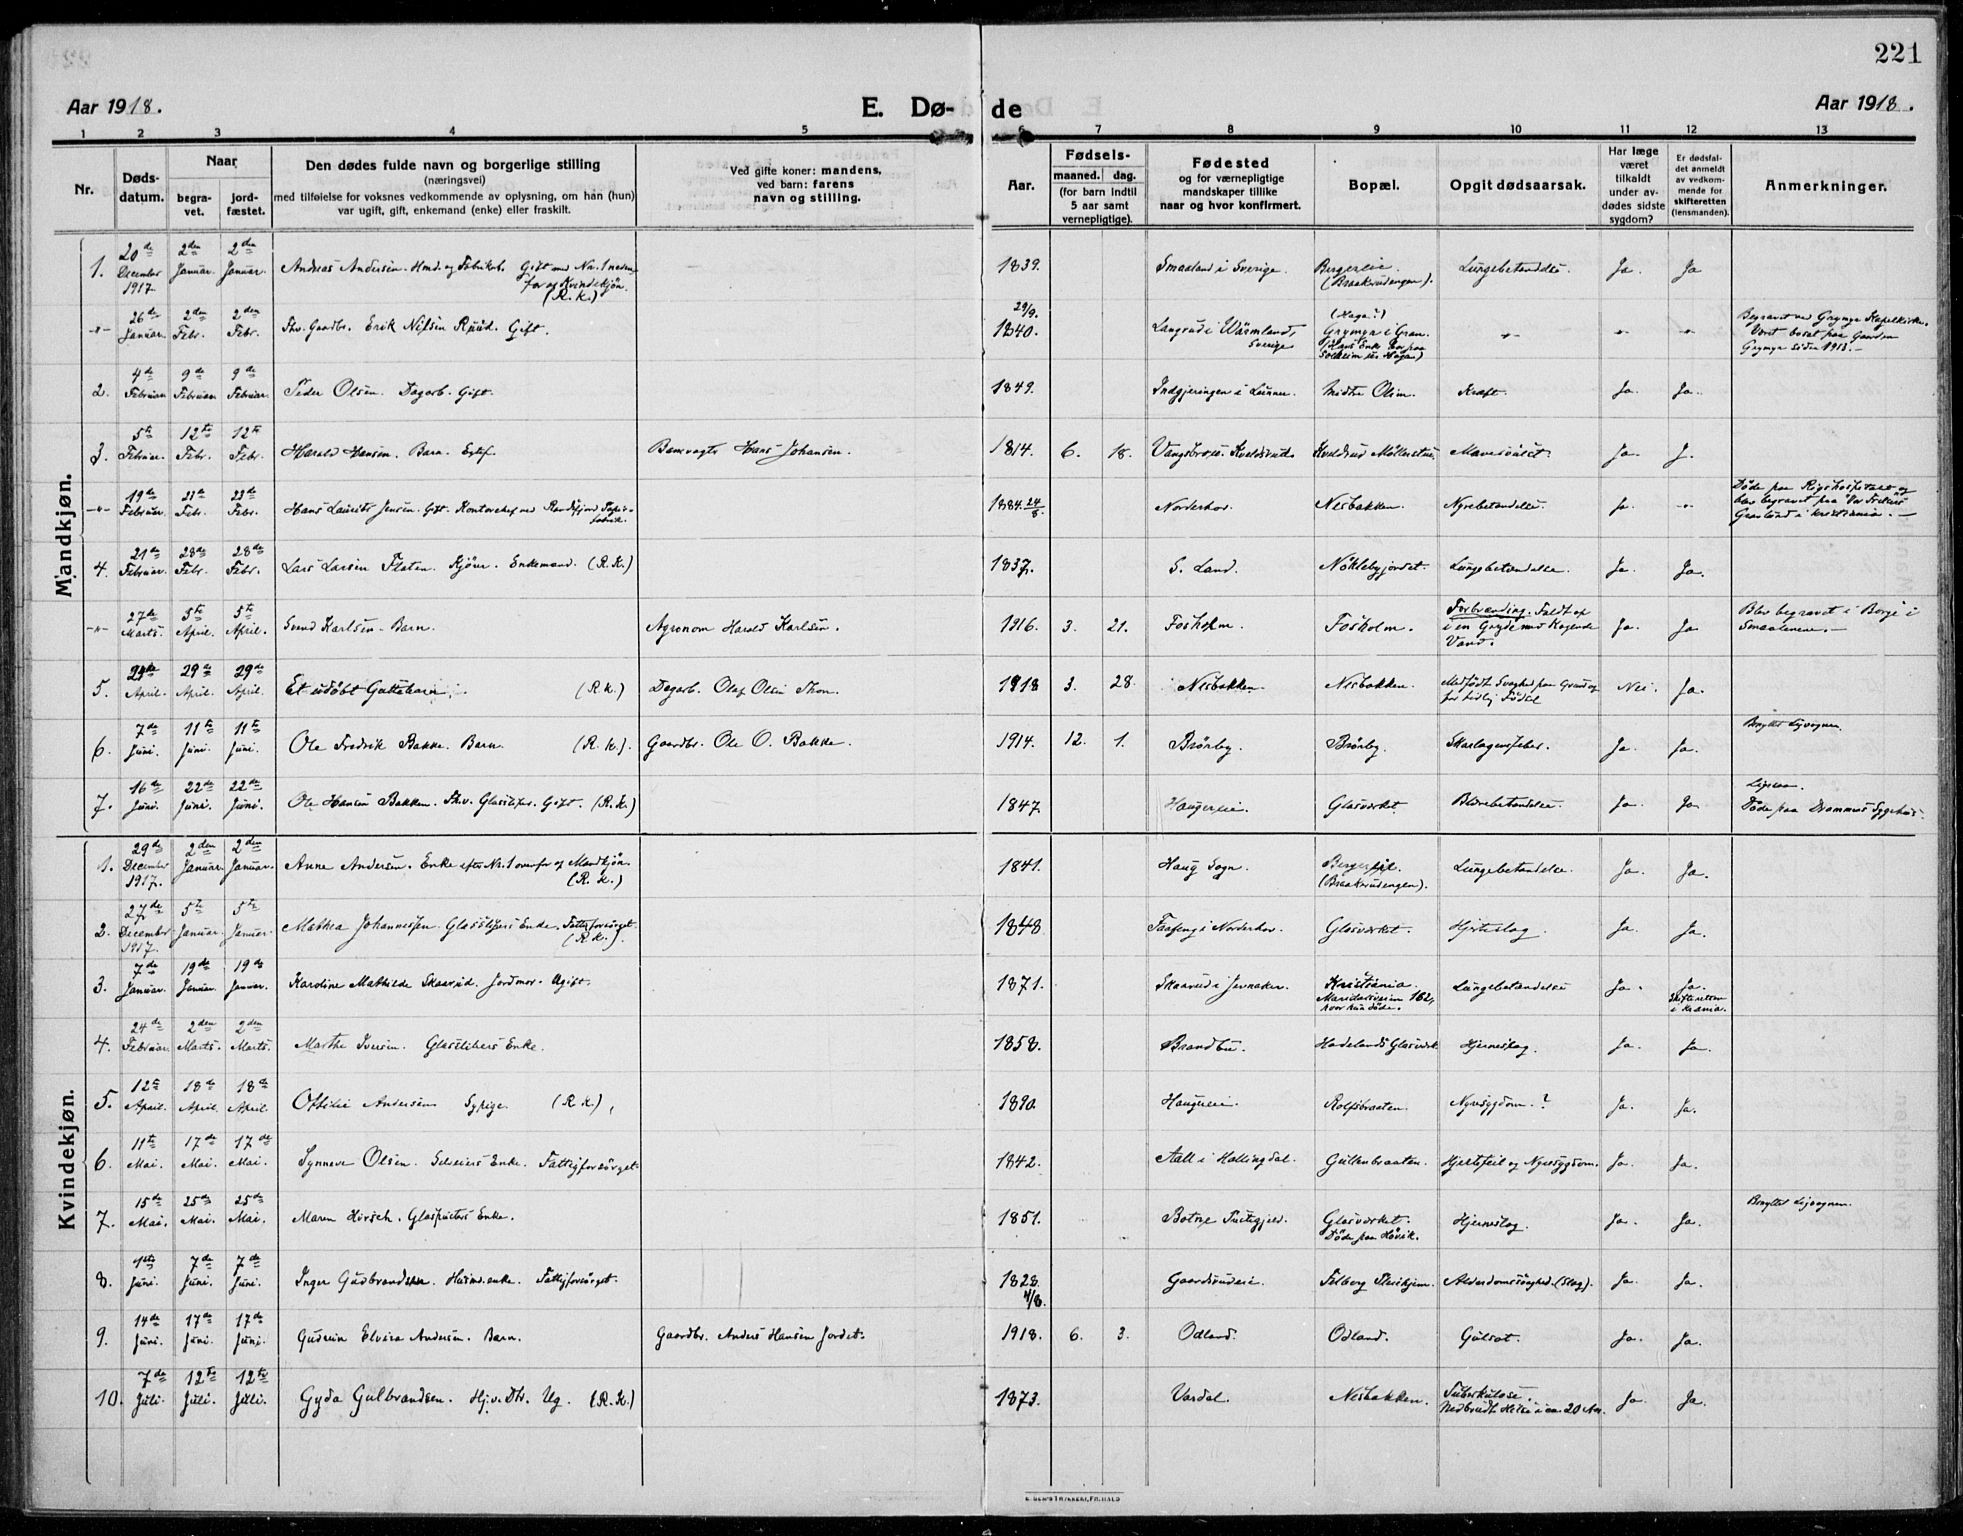 221
Aar 1918.
E. Dø-
de
Aar 1918.
1 2 3 4 5 6 7 8 9 10 11 12 13
Nr.
Døds-
datum.
Naar
begra-
vet.
jord-
fæstet.
Den dødes fulde navn og borgerlige stilling
(næringsvei)
med tilføielse for voksnes vedkommende av oplysning, om han (hun)
var ugift, gift, enkemand (enke) eller fraskilt.
Ved gifte koner: mandens,
ved barn: farens
navn og stilling.
Aar.
Fødsels-
maaned. dag.
(for barn indtil
5 aar samt
vernepligtige).
Fødested
og for værnepligtige
mandskaper tillike
naar og hvor konfirmert.
Bopæl.
Opgit dødsaarsak.
Har læge
været
tilkaldt
under av-
dødes sidste
sygdom?
Er dødsfal-
det anmeldt
av vedkom-
mende for
skifteretten
(lensmanden).
Anmerkninger.
Mandkjøn.
1. 20de December 1917. 2den Januar. 2den Januar. Andreas Andersen. Hmd. og Fabrikab. Gift med Nr. 1 neden
for og Kvindekjøn.
(R. K.)
1839. Smaaland i Sverige. Bergerlie.
(Braakrudengen). Lungebetændelse. Ja. Ja
-"- 26de Januar. 2den Febr. 2den Febr. Fhv. Gaardbr. Erik Nilsen Ruud. Gift.
29/9.
1840. Langrud i Wärmland,
Sverige
(Haga?)
Grymyr i Gran.
(Hans Enke bor paa
Solheim u. Hagan) -"- -"- -"-
Begravet ved Grymyr Kapelkirke.
Været bosat paa Gaarden
Grymyr siden 1913. -
2. 4de Februar 9de Februar 9de Februar. Peder Olsen. Dagarb. Gift. 1849. Indgjeringen i Lunner. Midtre Olim. Kræft. Ja. Ja.
3. 5te Februar. 12te Febr. 12te Febr. Harald Hansen. Barn. Barnevogts Hans Johansen. 1814. 6. 18. Kveldsrud Møllerstue. Mavesaaret. Ja. J.
-"- 19de Februar. 23de Febr. 23de Febr. Hans Laurits Jensen. Gift. Kontorchef ved Randsfjord Papir-
fabrik. 1884 24/8. Norderhov. Nesbakken. Nyrebetændelse. Ja. -"-
Døde paa Rigshospitalet og
blev begravet paa Vor Frelsers
Gravlund i Kristiania. -
4. 21de Februar. 28de Febr. 28de Febr. Lars Larsen Flaten. Kjører. Enkemand. (R. K.) 1837. S. Land. Nøklebyjordet. Lungebetændelse. Ja. Ja.
-"- 27de Marts. 5te April. 5te April. Svend Karlsen. Barn. Agronom Harald Karlsen. 1916. 3. 21. Fosholm. Fosholm.
Forbrænding. Faldt op
i en Gryde med Kogende
Vand. Ja. Ja
Blev begravet i Borge i
Smaalenene. -
5. 29de April. 29de April. 29de April. Et udøbt Guttebarn. (R. K.) Dagarb. Olaf Olsen Thon. 1918 3. 28. Nesbakken. Nesbakken. Medfødt Svaghed paa Grund af
for tidlig Fødsel Nei. Ja.
6. 7de Juni. 11te Juni. 11te Juni. Ole Fredrik Bakke. Barn. (R. K.). Gaardbr. Ole O. Bakke. 1914. 12. 1. Brørby. Brørby. Skarlagensfeber. Ja. Ja. Benyttet Ligvognen.
7. 16de Juni. 22de Juni. 22de Juni. Ole Hansen Bakken. Fhv. Glassliber. Gift. (R. K.) 1847. Haugerlie. Glasværket. Blærebetændelse. Ja. Ja
Døde paa Drammens Sygehus.
Kvindekjøn.
1. 29de December 1917. 2den Januar. 2den Januar. Anne Andersen. Enke efter Nr. 1 ovenfor og Mandkjøn.
(R. K.) 1841. Haug Sogn.
(Braakrudengen). Lungebetændelse. Ja. Ja.
2. 27de December 1917. 5te Januar. 5te Januar. Mathea Johannessen. Glassliberes Enke. Fattigforsørget.
(R. K.). 1848. Norderhov. Glasværket. Hjerteslag. Ja. Ja.
3. 7de Januar. 19de Januar. 19de Januar. Karoline Mathilde Skaarud. Jordmor. Ugift. 1871. Skaarud i Jevnaker. Kristiania.
Maridalsveien 162,
hvor hun døde. Lungebetændelse Ja. Ja.
Skifteretten
i Krania.
4. 24de Februar. 2den Marts. 2den Marts. Marthe Iversen. Glasslibers Enke. 1858. Brandbu. Hadelands Glasværk. Hjerneslag. Ja. Ja.
5. 12te April. 18de April. 18de April. Ottilie Andersen Sypige. (R. K.), 1890. Haugerlie. Rolfsbraaten. Nyresygdom. ? Ja. Ja.
6. 11te Mai. 17de Mai. 17de Mai. Synneve Olsen. Selveiers Enke. Fattigforsørget. 1842. Aal i Hallingdal. Gullenbraaten. Hjertefeil og Nyresygdom. Ja. Ja.
7. 15de Mai. 25de Mai. 25de Mai. Maren Hirsch. Glaspusters Enke. 1851. Botne Prestegjeld. Glasværket.
Døde paa Høvik. Hjerneslag. Ja. Ja. Benyttet Ligvognen.
8. 1ste Juni. 7de Juni. 7de Juni. Inger Gudbrandsen. Husmds.enke. Fattigforsørget. 1828.
4/8. Gaardsrudeie. Alderdomssvaghed. (Slag). Ja. Ja.
9. 14de Juni. 17de Juni. 17de Juni. Gudrun Elvira Andersen. Barn. Gaardbr. Anders Hansen Jordet. 1918. 6. 3. Odland. Odland. Gulsot. Ja. Ja.
10. 7de Juli. 12te Juli. 12te Juli. Gyda Gulbrandsen. Hj.v. Dtr. Ug. (R. K.) 1873. Vardal. Nesbakken. Tuberkulose.
Nedbrudt Helse i ca. 20 Aar. Ja. Ja.